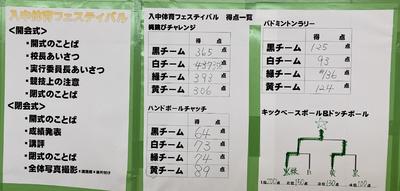 入中体育フェスティバル
<開会式>
・開式のことば
・校長あいさつ
・実行委員長あいさつ
・競技上の注意
・閉式のことば
<閉会式>
・開式のことば
・成績発表
・講評
・閉式のことば
・全体写真撮影
入中体育フェスティバル 得点一覧
縄跳びチャレンジ
得 点
黒チーム 365 点
白チーム 点
緑チーム 393 点
黄チーム 306 点
ハンドボールキャッチ
得 点
黒チーム 64 点
白チーム 73 点
緑チーム 74 点
黄チーム 89 点
バドミントンラリー
得 点
黒チーム 125 点
白チーム 93 点
緑チーム 136 点
黄チーム 124 点
キックベースボール&ドッチボール